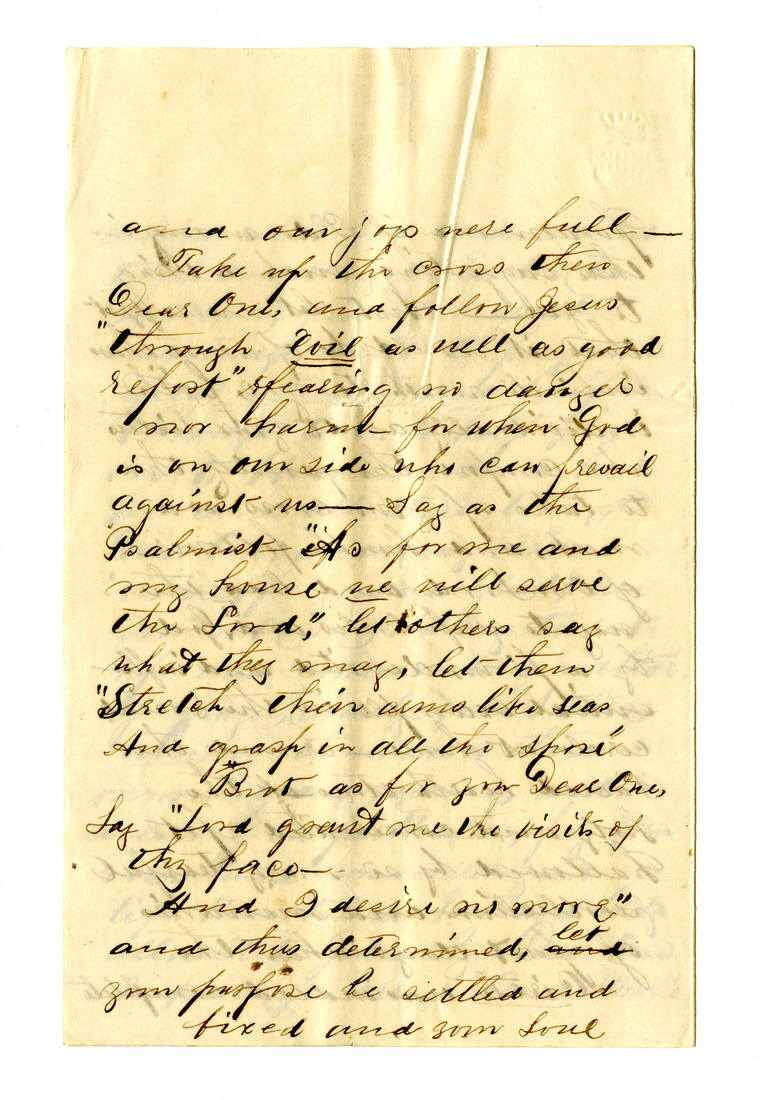 and our joys were full —
Take up the cross then
Dear One, and follow Jesus
"through Evil as well as good
report" fearing no danger
nor harm — for when God
is on our side who can prevail
against us — Say as the
Psalmist — "As for me and
my house we will serve
the Lord," let others say
what they may, let them
"Stretch their arms like seas
And grasp in all the shore"
"But as for you Dear One,
Say "Lord grant me the visits of
thy face —
And I desire no more"
and thus determined, let
and
your purpose be settled and
fixed and your Soul